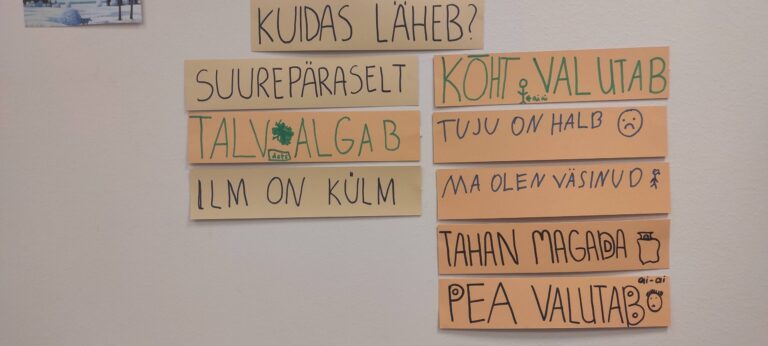 KUIDAS LÄHEB?
SUUREPÄRASELT
TALV ALGAB
ILM ON KÜLM
KÕHT VALUTAB
ai-ai
TUJU ON HALB
MA OLEN VÄSINUD
TAHAN MAGADA
ai-ai
PEA VALUTAB